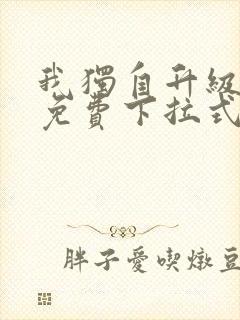 我獨自升級
免費下拉式
胖子愛喫燉豆